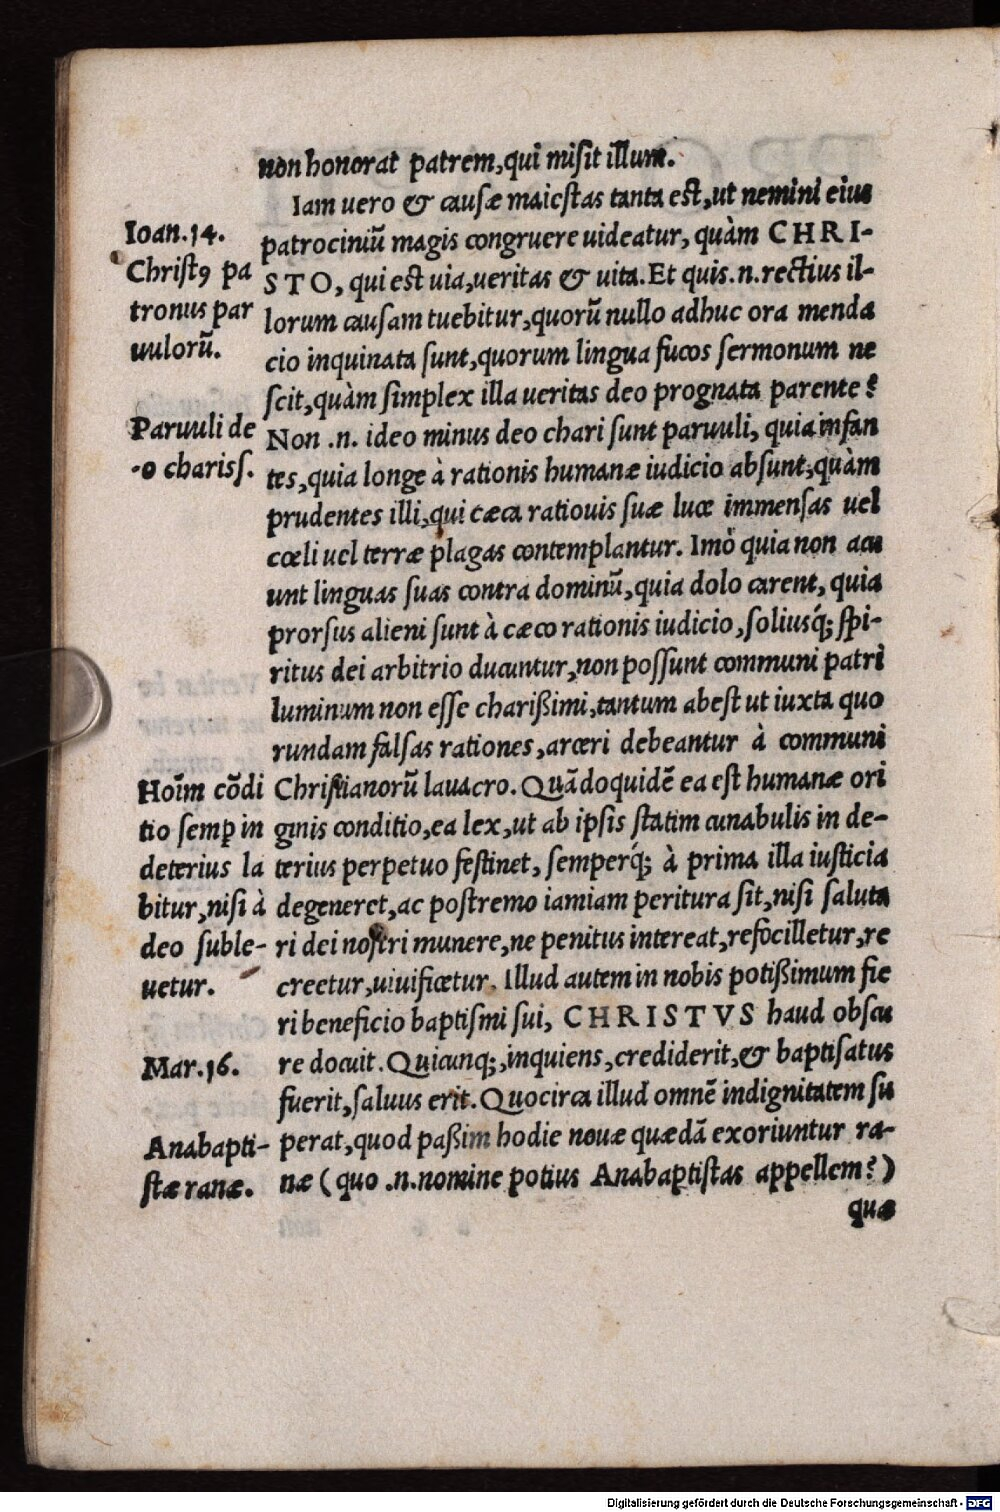 non honorat patrem, qui misit illum.
Iam uero & causæ maiestas tanta est, ut nemini eius
patrociniũ magis congruere uideatur, quàm CHRI-
STO, qui est uia, ueritas & uita. Et quis .n. rectius il-
lorum causam tuebitur, quorũ nullo adhuc ora menda
cio inquinata sunt, quorum lingua fucos sermonum ne
scit, quàm simplex illa ueritas deo prognata parente?
Non .n. ideo minus deo chari sunt paruuli, quia infan
tes, quia longe à rationis humanæ iudicio absunt, quàm
prudentes illi, qui cæca ratiouis suæ luce immensas uel
cœli uel terræ plagas contemplantur. Imò quia non acu
unt linguas suas contra dominũ, quia dolo carent, quia
prorsus alieni sunt à cæco rationis iudicio, soliusq́; spi-
ritus dei arbitrio ducuntur, non possunt communi patri
luminum non esse charißimi, tantum abest ut iuxta quo
rundam falsas rationes, arceri debeantur à communi
Christianorũ lauacro. Quãdoquidẽ ea est humanæ ori
ginis conditio, ea lex, ut ab ipsis statim cunabulis in de-
terius perpetuo festinet, semperq́; à prima illa iusticia
degeneret, ac postremo iamiam peritura sit, nisi saluta
ri dei nostri munere, ne penitus intereat, refocilletur, re
creetur, uiuificetur. Illud autem in nobis potißimum fie
ri beneficio baptismi sui, CHRISTVS haud obscu
re docuit. Quicunq;, inquiens, crediderit, & baptisatus
fuerit, saluus erit. Quocirca illud omnẽ indignitatem su
perat, quod paßim hodie nouæ quædã exoriuntur ra-
næ (quo .n. nomine potius Anabaptistas appellem?)
quæ
Ioan.14.
Christꝰ pa
tronus par
uulorũ.
Paruuli de
-o chariss.
Hoĩm cõdi
tio semꝑ in
deterius la
bitur, nisi à
deo suble-
uetur.
Mar.16.
Anabapti-
stæ ranæ.
Digitalisierung gefördert durch die Deutsche Forschungsgemeinschaft - DFG